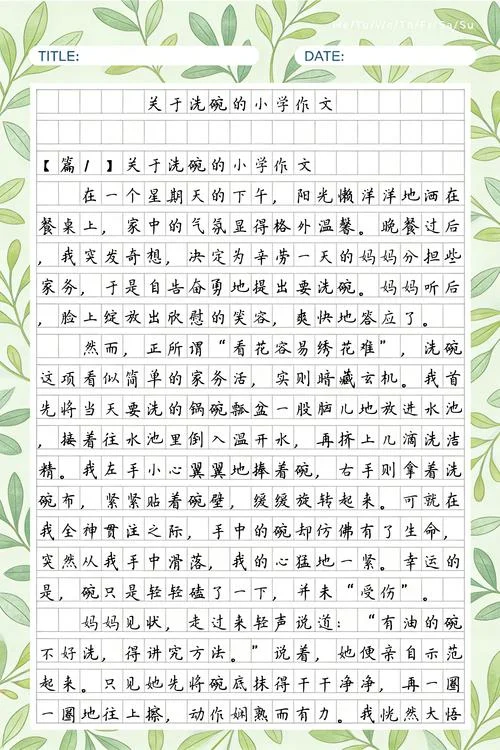 Me/Tu/We/Th/Fr/Sa/Su
TITLE: DATE:
关于洗碗的小学作文
【篇1】关于洗碗的小学作文
在一个星期天的下午，阳光懒洋洋地洒在
餐桌上，家中的气氛显得格外温馨。晚餐过后
，我突发奇想，决定为辛劳一天的妈妈分担些
家务，于是自告奋勇地提出要洗碗。妈妈听后
，脸上绽放出欣慰的笑容，爽快地答应了。
然而，正所谓“看花容易绣花难”，洗碗
这项看似简单的家务活，实则暗藏玄机。我首
先将当天要洗的锅碗瓢盆一股脑儿地放进水池
，接着往水池里倒入温开水，再挤上几滴洗洁
精。我左手小心翼翼地捧着碗，右手则拿着洗
碗布，紧紧贴着碗壁，缓缓旋转起来。可就在
我全神贯注之际，手中的碗却仿佛有了生命，
突然从我手中滑落，我的心猛地一紧。幸运的
是，碗只是轻轻磕了一下，并未“受伤”。
妈妈见状，走过来轻声说道：“有油的碗
不好洗，得讲究方法。”说着，她便亲自示范
起来。只见她先将碗底抹得干干净净，再一圈
一圈地往上擦，动作娴熟而有力。我恍然大悟